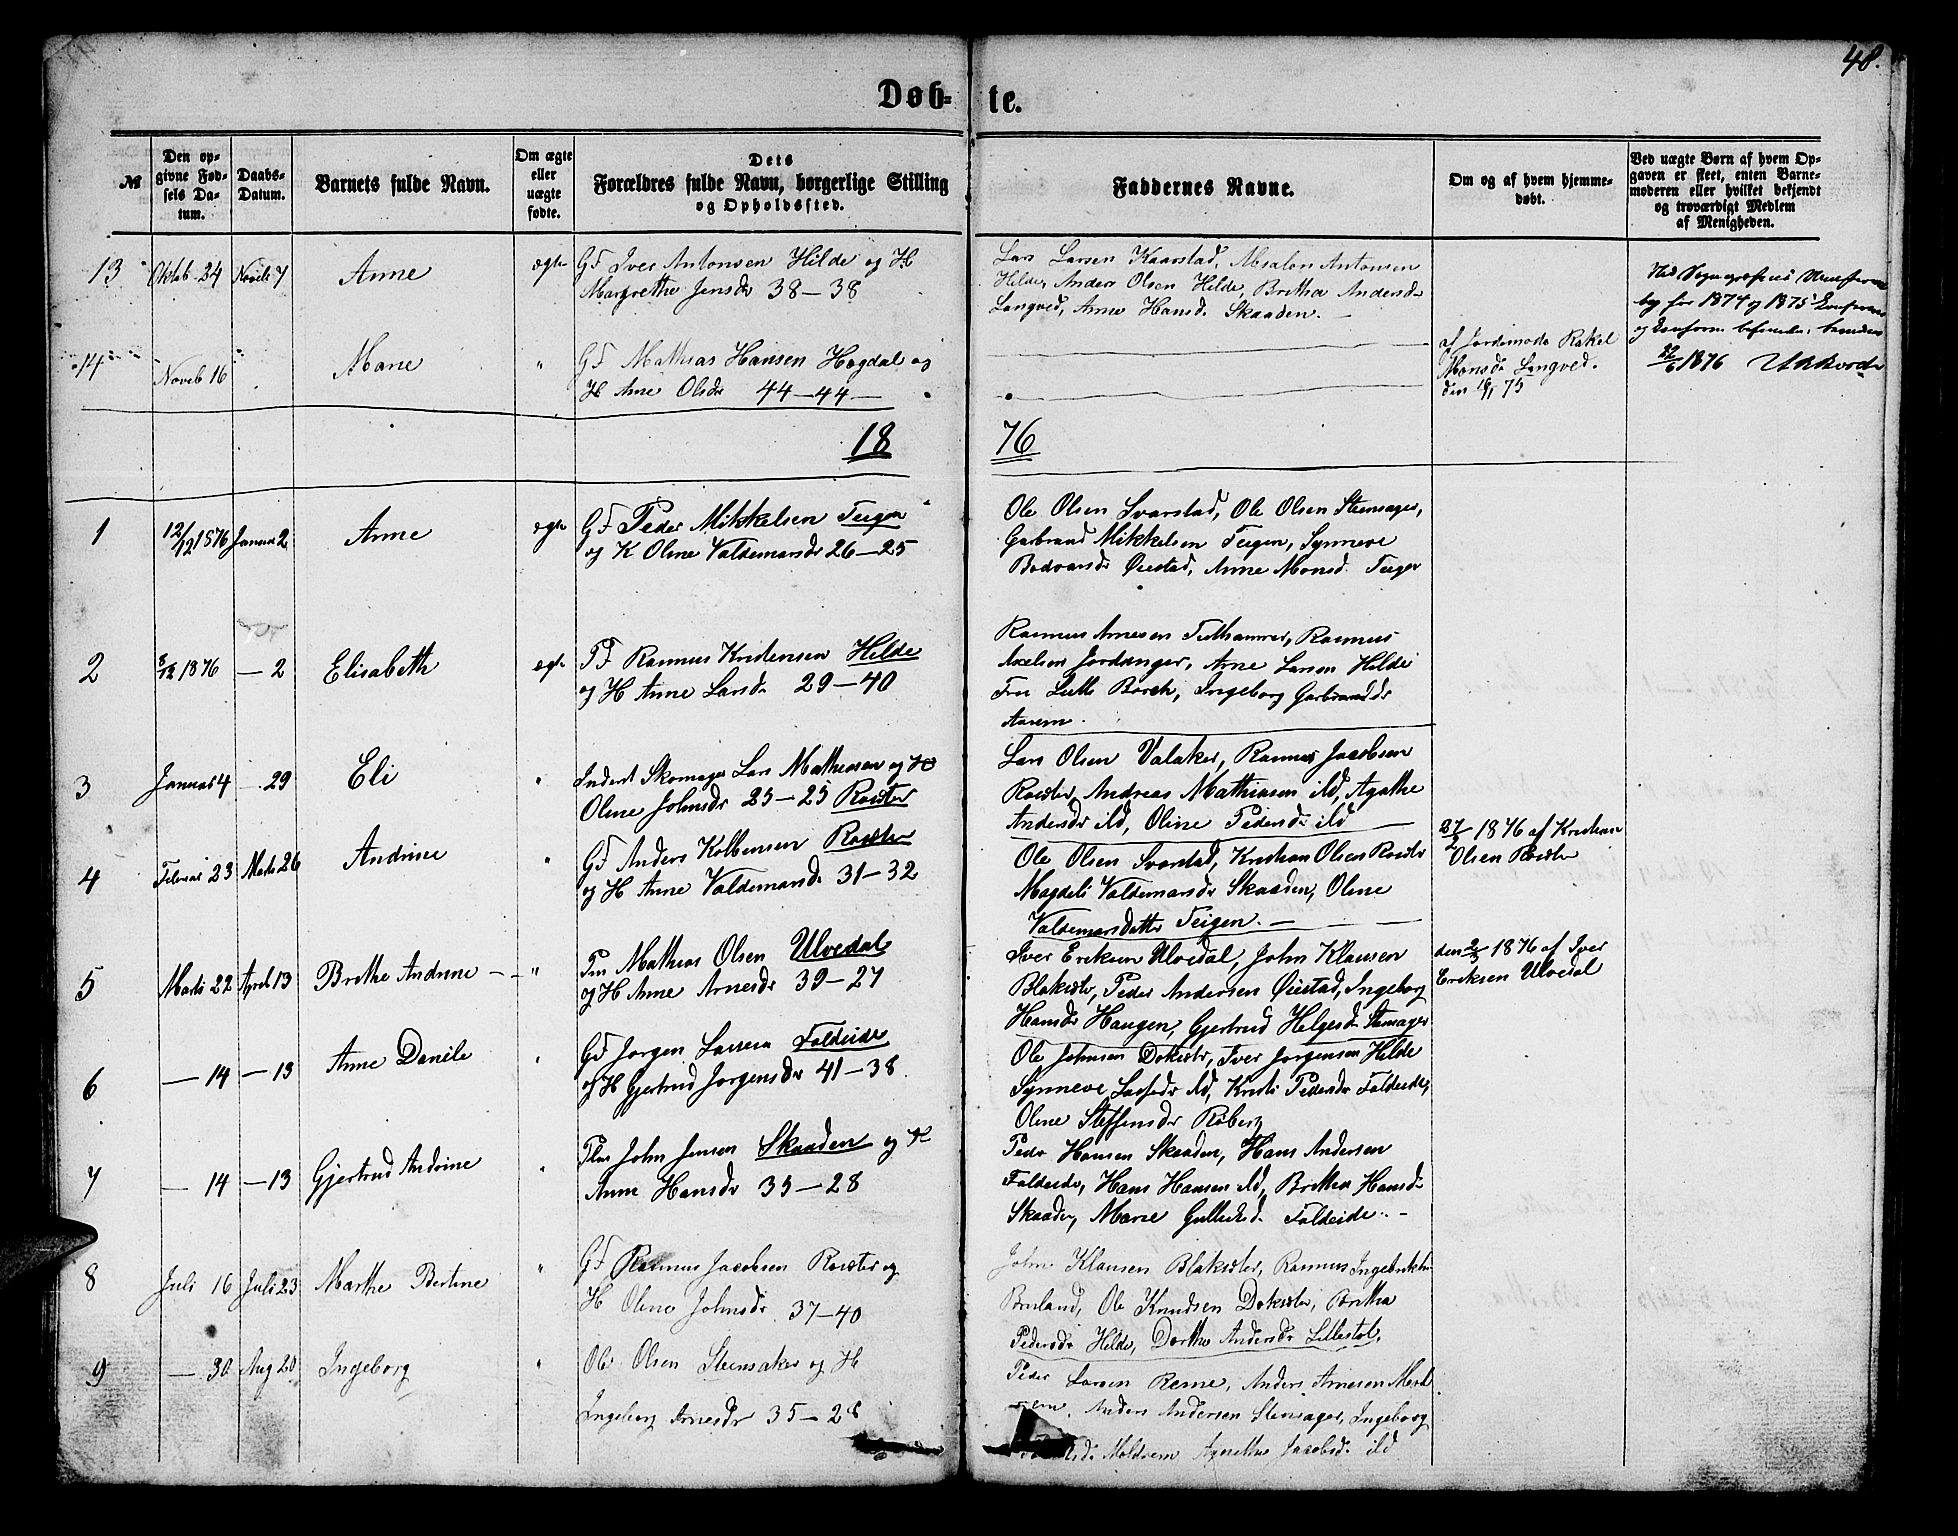 48.
Døb- te.
№
Den opgivne Fødsels Datum.
Daabs-Datum.
Barnets fulde Navn.
Om ægte eller uægte fødte.
Dets Forældres fulde Navn, borgerlige Stilling og Opholdssted.
Faddernes Navne.
Om og af hvem hjemmedøbt.
Ved uægte Børn af hvem Opgaven er skeet, enten Barnemoderen eller hvilket bekjendt og troværdigt Medlem af Menigheden.
13 Oktob 24 Novb 7 Anne ægte GF Iver Antonsen Hilde og H
Margrethe Jensdr 38–38
Lars Larsen Kaarstad, Absalon Antonsen
Hilde, Anders Olsen Hilde, Brithe Andersdr
Langved, Anne Hansd. Skaaden.
for 1874 og 1875
1876
14 Novb 16 Marie " GF Mathias Hansen Hogdal og
H Anne Olsdr 44–44
af Jordemoder Rakel
Monsdr Langved.
den 16/11 75
18 76
1 12/12 1876 Januar 2 Anne ægte GF Peder Mikkelsen Teigen
og K Oline Valdemarsdr 26–25
Ole Olsen Svarstad, Ole Olsen Stensager,
Garbrand Mikkelsen Teigen, Synneve
Bødvarsdr Øiestad, Anne Monsd. Teigen
2 8/12 1876 – 2 Elisabeth ægte PF Rasmus Kristensen Hilde
og H Anne Larsdr 29–40
Rasmus Arnesen Tuthammer, Rasmus
Axelsen Jordanger, Arne Larsen Hilde
Fru Lulli Borch, Ingeborg Garbrandsdr
Aarem.
3 Januar 4 – 29 Eli " Inderst Skomager Lars Mathiasen og H
Oline Johnsdr 25–25 Roseter
Lars Olsen Valaker, Rasmus Jacobsen
Roseter, Andreas Mathiasen ibd, Agathe
Andersdr ibd, Oline Pedersdr ibd
4 Februar 23 Marts 26 Andrine " GF Anders Kolbensen Roseter
og H Anne Valdemarsdr 31–32
Ole Olsen Svarstad, Kristian Olsen Roseter
Magdeli Valdemarsdr Skaaden, Oline
Valdemarsdatter Teigen.
27/2 1876 af Kristian
Olsen Roseter
5 Marts 22 April 13 Brithe Andrine " Pm Mathias Olsen Ulvedal
og H Anne Arnesdr 39–27
Iver Eriksen Ulvedal, John Klausen
Blakseter, Peder Andersen Øiestad, Ingeborg
Hansdr Haugen, Gjertrud Helgesd. Stensager
den 2/3 1876 af Iver
Eriksen Ulvedal
6 – 14 – 13 Anne Danile " GF Jørgen Lassesen Foldeide
og H Gjertrud Jørgensdr 41–38.
Ole Johnsen Dokseter, Iver Jørgensen Hilde
Synneve Lassesdr ibd, Kristi Pedersdr Foldeide,
Oline Steffensdr Roberg
7 – 14 – 13 Gjertrud Andrine " Plas John Jensen Skaaden og K
Anne Hansdr 35–28
Peder Hansen Skaaden, Hans Andersen
Foldeide, Hans Hansen ibd, Brithe Hansd.
Skaaden, Marie Gulliksd. Foldeide.
8 Juli 16 Juli 23 Marthe Bertine " GF Rasmus Jacobsen Roseter og
H Oline Johnsdr 37–40
John Klausen Blakseter, Rasmus Ingebriktsen
Bruland, Ole Knudsen Dokseter, Brithe
Pedersdr Hilde, Dorthe Andersdr Lillestøl.
9 – 30 Aug 20 Ingeborg " Ole Olsen Stensaker og H
Ingeborg Arnesdr 35–28
Peder Larsen Reme, Anders Arnesen Mold
rem, Anders Andersen Stensager, Ingeborg
Moldrem Agnethe Jacobsd. ibd